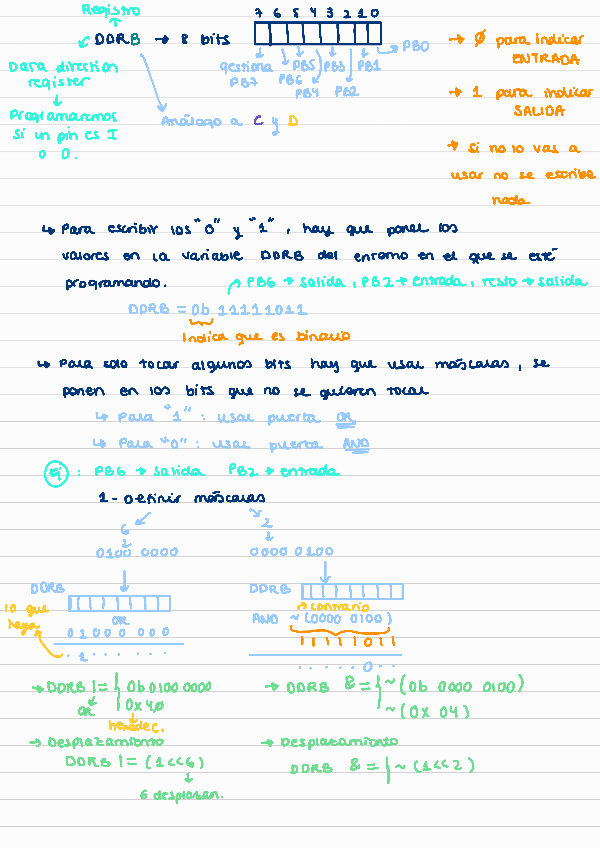 Registro
7 6 5 4 3 2 1 0
DDRB → 8 bits
PB0
gestiona PB5 PB3 PB1
PB7 PB6
PB4 PB2
→ 0 para indicar
ENTRADA
→ 1 para indicar
SALIDA
→ si no lo vas a
usar no se escribe
nada
Data direction
register
Programaremos
si un pin es I
o O.
Análogo a C y D
↳ Para escribir los "0" y "1", hay que poner los
valores en la variable DDRB del entorno en el que se esté
programando.
PB6 → salida, PB2 → entrada, resto → salida
DDRB = 0b 11111011
Indica que es binario
↳ Para solo tocar algunos bits hay que usar máscaras, se
ponen en los bits que no se quieren tocar
↳ Para "1": usar puerta OR
↳ Para "0": usar puerta AND
Ej: PB6 → salida PB2 → entrada
1- Definir máscaras
6
0100 0000
DDRB
OR
lo que
haya
0 1 0 0 0 0 0 0
. 1 . . . . . .
→ DDRB |= 0b 0100 0000
0x40
OR
hexadec.
→ Desplazamiento
DDRB |= (1<<6)
6 desplazan.
2
0000 0100
DDRB
contrario
AND ~(0000 0100)
1 1 1 1 1 0 1 1
. . . . . 0 . .
→ DDRB &= ~(0b 0000 0100)
~(0x 04)
→ Desplazamiento
DDRB &= ~(1<<2)